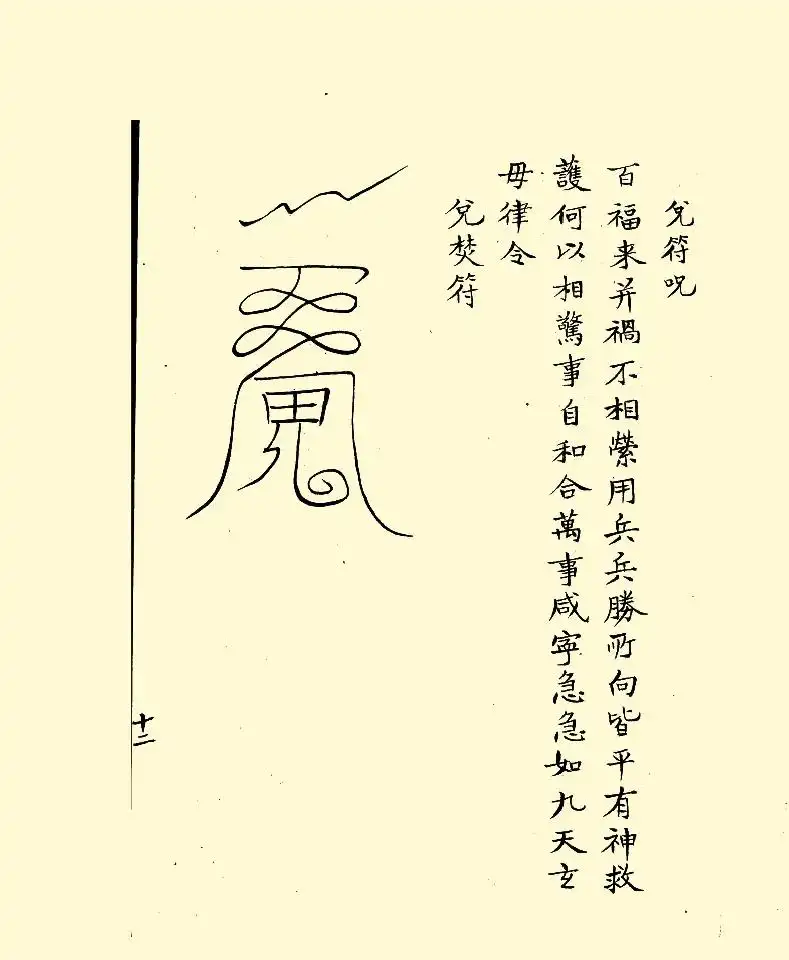 兌符呪
百福来并禍不相縈用兵兵勝所向皆平有神救
護何以相驚事自和合萬事咸寧急急如九天玄
毋律令
兌焚符
十二